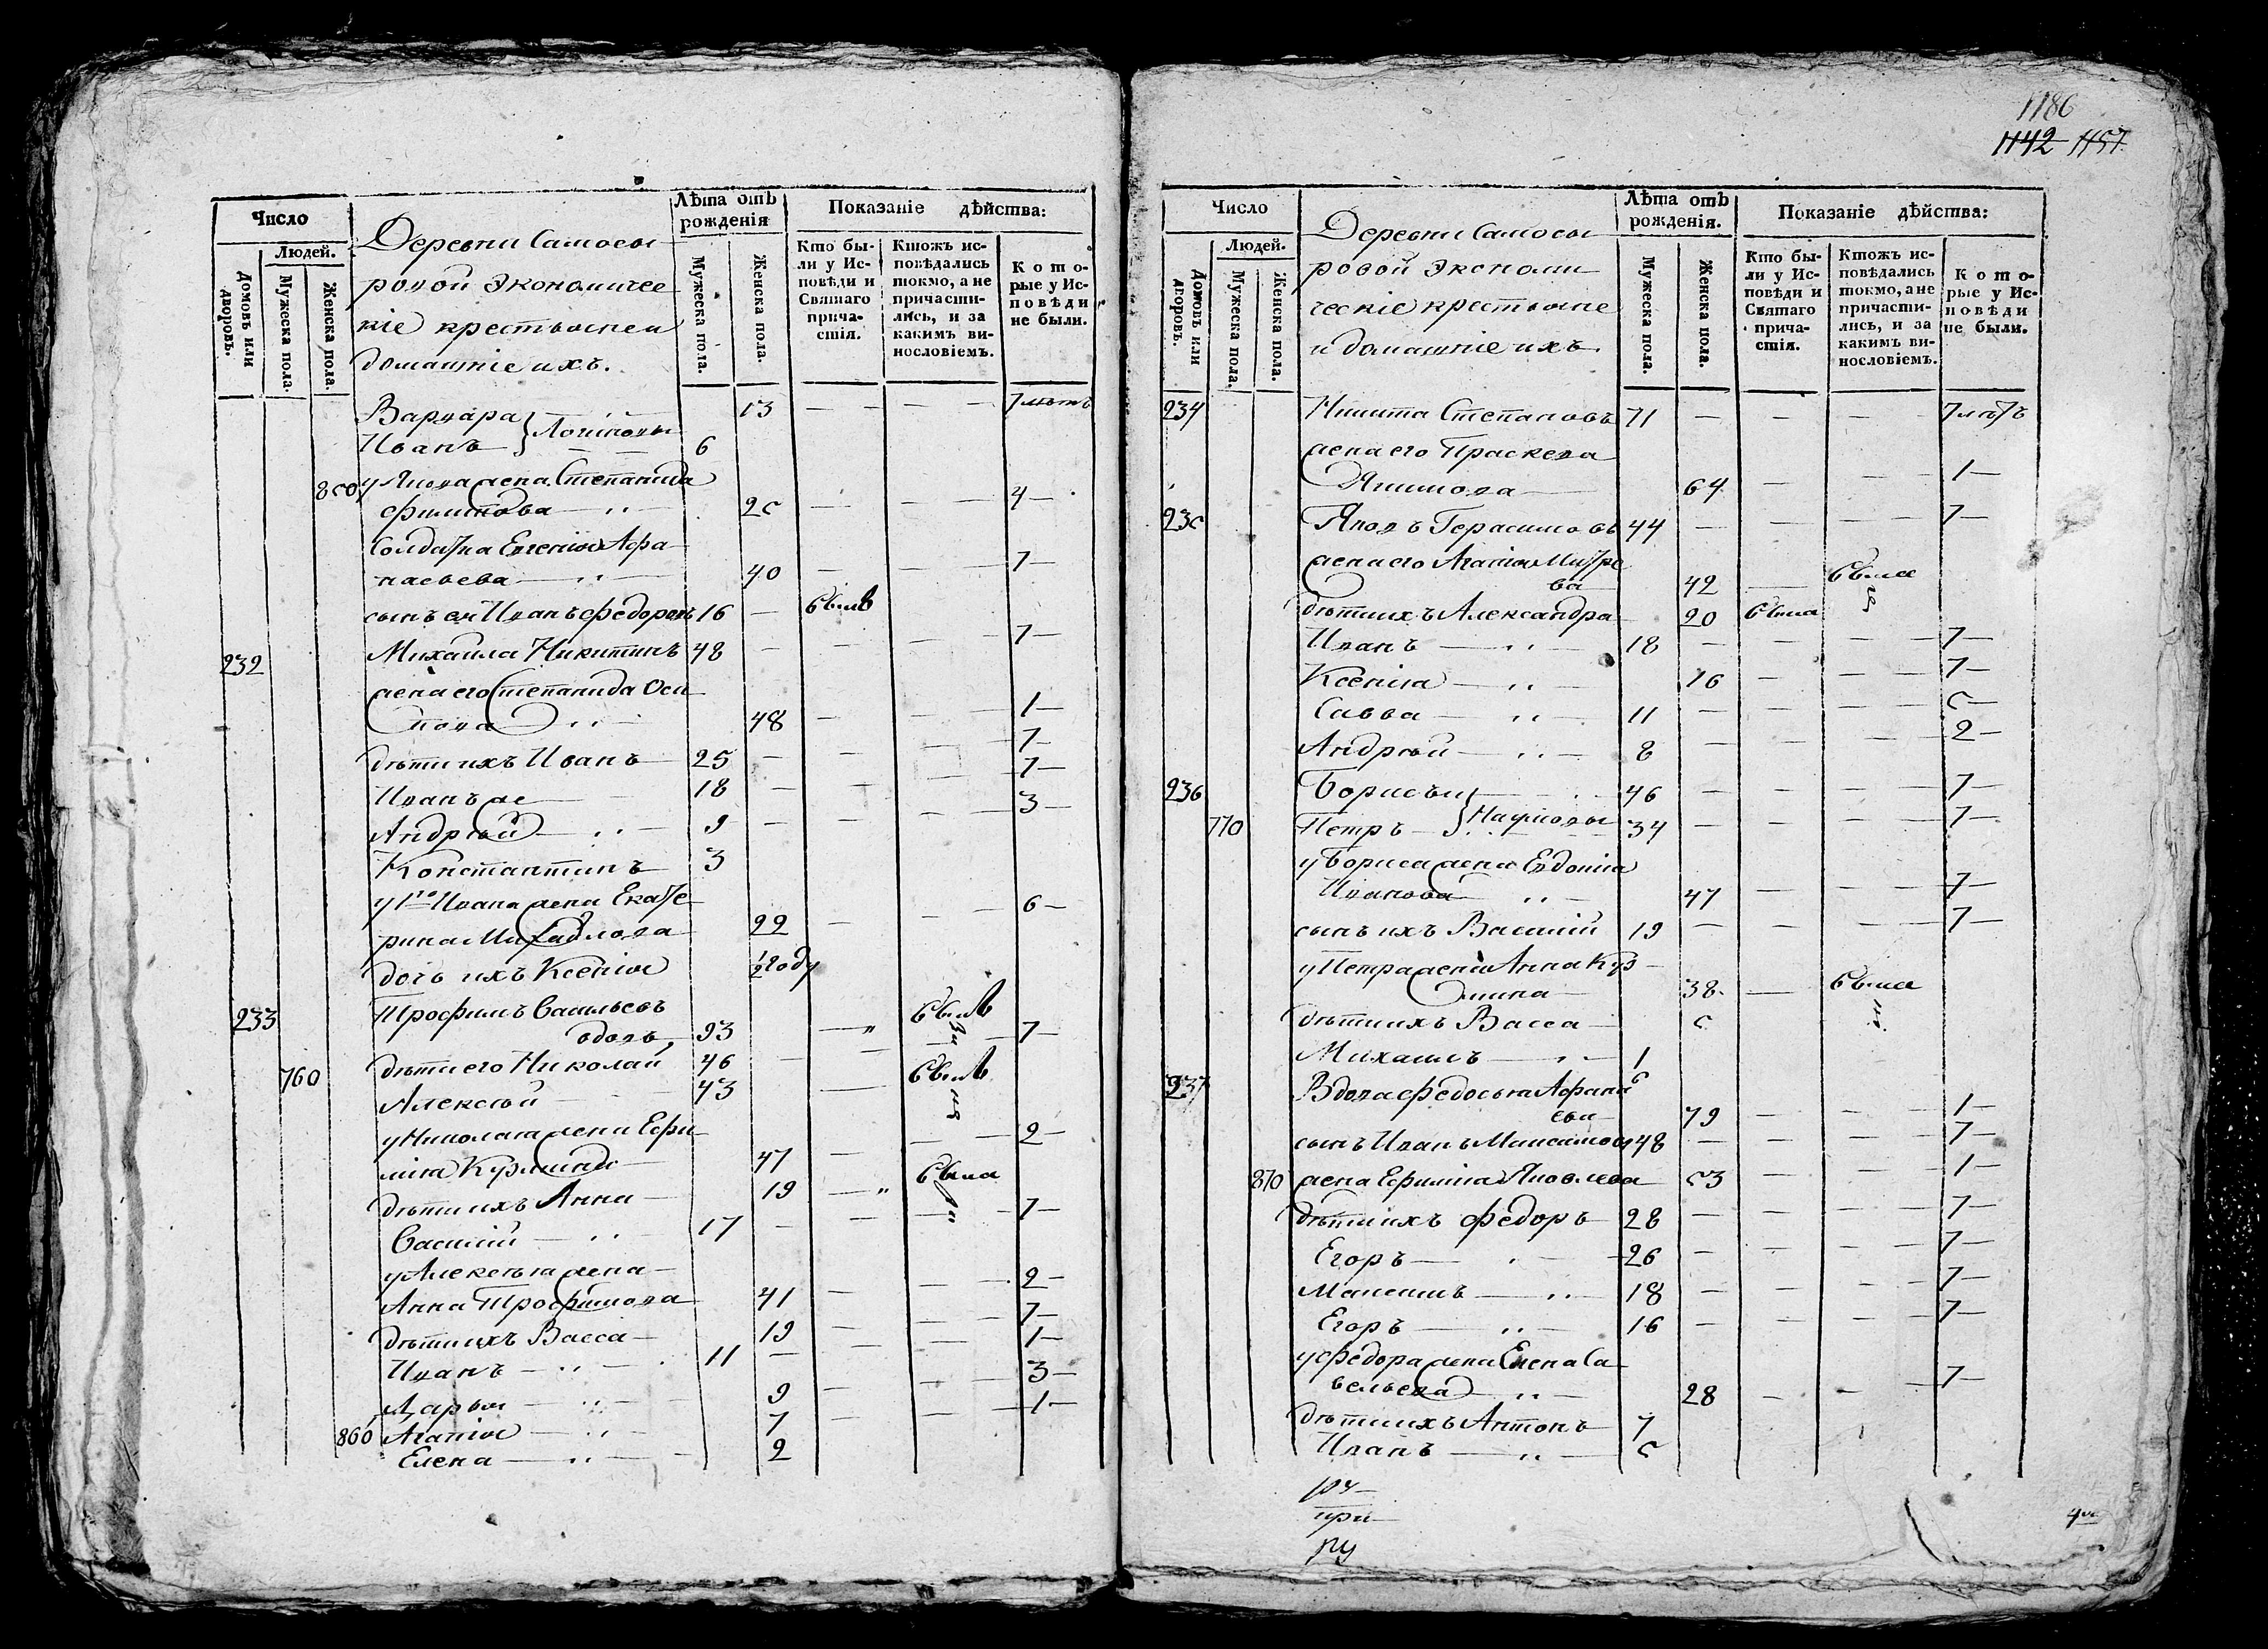 Число
Людей.
Домовъ или дворовъ.
Мужеска пола.
Женска пола.
Деревни Самосы
ровой Экономичес
кіе крестьяне и
домашніе ихъ.
Лѣта отъ рожденія
Мужеска пола.
Женска пола.
Показаніе дѣйства:
Кто были у Исповѣди и Святаго причастія.
Ктожъ исповѣдались токмо, а не причастились, и за какимъ винословіемъ.
Которые у Исповѣди не были.
Варвара 13 — — — — 7 лѣтъ
Иванъ 6
850 у Якова жена Степанида
Филипова 25 — — — 4 —
Солдатка Евгенія Афа
насьева 40 — — — 7 —
сынъ ея Иванъ Федоровъ 16 — былъ
232 Михаила Никитинъ 48 — — 7 —
жена его Степанида Оси
пова 48 — — — 1 —
дѣти ихъ Иванъ 25 — — — 7 —
Иванъ же 18 — — — 7 —
Андрей 9 — — — 3 —
Константинъ 3
у 1го Ивана жена Екате
рина Михайлова 22 — — — 6 —
дочь ихъ Ксенія ½ году
233 Трофимъ Васильевъ
вдовъ, 93 — былъ
760 дѣти его Николай 46 — — — 7 —
Алексѣй 43 — былъ
у Николая жена Ефи
мія Кузмина 47 — — — 2 —
дѣти ихъ Анна 19 — была
Василій 17 — — — 7 —
у Алексѣя жена
Анна Трофимова 41 — — — 2 —
дѣти ихъ Васса 19 — — — 7 —
Иванъ 11 — — — 1 —
Дарья 9 — — — 3 —
860 Агапія 7 — — — 1 —
Елена 2
1186
1142 1157
Число
Людей.
Домовъ или дворовъ.
Мужеска пола.
Женска пола.
Деревни Самосы
ровой Экономи
ческіе крестьяне
и домашніе ихъ.
Лѣта отъ рожденія.
Мужеска пола.
Женска пола.
Показаніе дѣйства:
Кто были у Исповѣди и Святаго причастія.
Ктожъ исповѣдались токмо, а не причастились, и за какимъ винословіемъ.
Которые у Исповѣди не были.
234 Никита Степановъ 71 — — — 7 лѣтъ
жена его Праскева
Якимова 64 — — — 1 —
235 Яковъ Герасимовъ 44 — — — 7 —
жена его Агапія Митре
ва 42 — была
дѣти ихъ Александра 20 была
Иванъ 18 — — — 7 —
Ксенія 16 — — — 7 —
Савва 11 — — — 5 —
Андрей 8 — — — 2 —
236 Борисъ 46 — — — 7 —
770 Петръ } Наумовы 34 — — — 7 —
у Бориса жена Евдокія
Иванова 47 — — — 7 —
сынъ ихъ Василій 19 — — — 7 —
у Петра жена Анна Куз
мина 38 — была
дѣти ихъ Васса 5
Михаилъ 1
237 Вдова Федосья Афанас
ева 79 — — — 1 —
сынъ Иванъ Максимовъ 48 — — — 7 —
870 жена Ефимія Яковлева 53 — — — 1 —
дѣти ихъ Федоръ 28 — — — 7 —
Егоръ 26 — — — 7 —
Максимъ 18 — — — 7 —
Егоръ 16 — — — 7 —
у Федора жена Елена Са
вельева 28 — — — 7 —
дѣти ихъ Антонъ 7
Иванъ 5
при